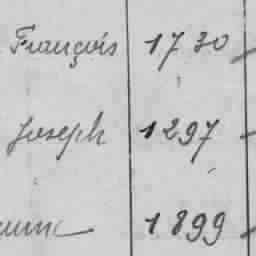 François 1730
Joseph 1297
1899